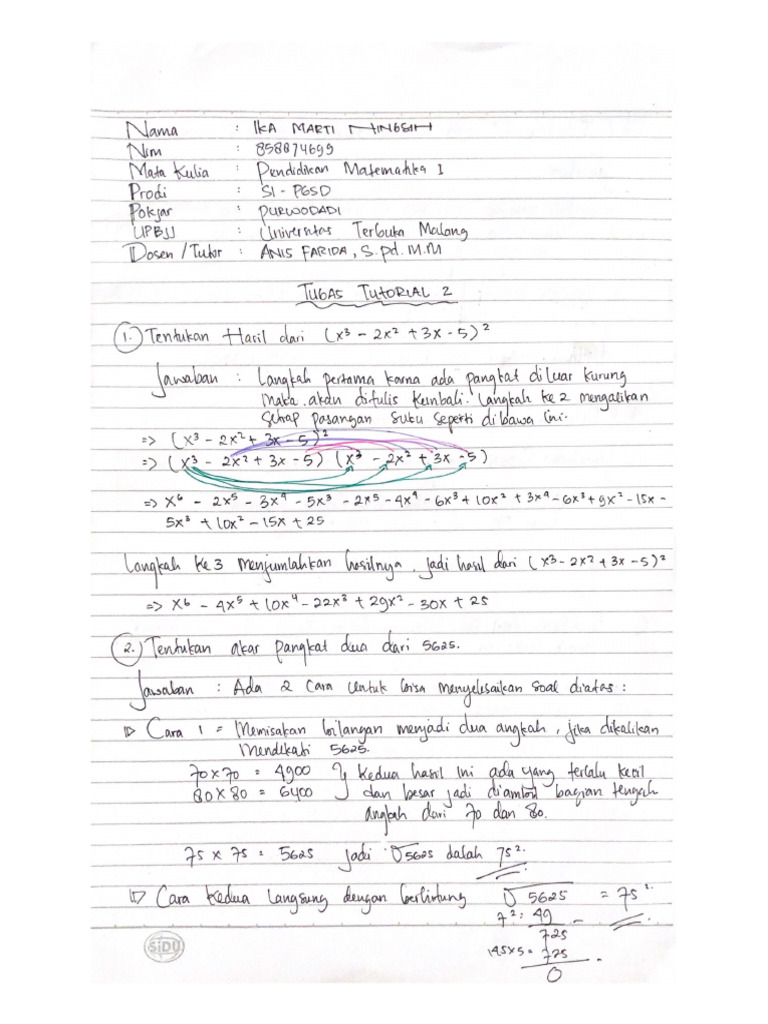 Nama : IKA MARTI NINGSIH
Nim : 858874699
Mata Kulia : Pendidikan Matematika 1
Prodi : S1 - PGSD
Pokjar : PURWODADI
UPBJJ : Universitas Terbuka Malang
Dosen / Tutor : ANIS FARIDA, S.pd. M.M
TUGAS TUTORIAL 2
1. Tentukan Hasil dari (x³ - 2x² + 3x - 5)²
Jawaban : Langkah pertama karna ada pangkat diluar kurung
maka akan ditulis kembali. Langkah ke 2 mengalikan
setiap pasangan suku seperti dibawa ini.
=> (x³ - 2x² + 3x - 5)²
=> (x³ - 2x² + 3x - 5) (x³ - 2x² + 3x - 5)
=> x⁶ - 2x⁵ - 3x⁴ - 5x³ - 2x⁵ - 4x⁴ - 6x³ + 10x² + 3x⁴ - 6x³ + 9x² - 15x -
5x³ + 10x² - 15x + 25
Langkah ke 3 menjumlahkan hasilnya, jadi hasil dari (x³ - 2x² + 3x - 5)²
=> x⁶ - 4x⁵ + 10x⁴ - 22x³ + 29x² - 30x + 25
2. Tentukan akar pangkat dua dari 5625.
Jawaban : Ada 2 Cara untuk bisa menyelesaikan soal diatas :
Cara 1 = Memisakan bilangan menjadi dua angkah, jika dikalikan
mendekati 5625.
70 x 70 = 4900 } kedua hasil ini ada yang terlalu kecil
80 x 80 = 6400 dan besar jadi diambil bagian tengah
angkah dari 70 dan 80.
75 x 75 = 5625 jadi √5625 dalah 75².
Cara kedua langsung dengan berhitung √5625 = 75².
7² = 49 -
725
145x5 = 725 -
0
SiDU